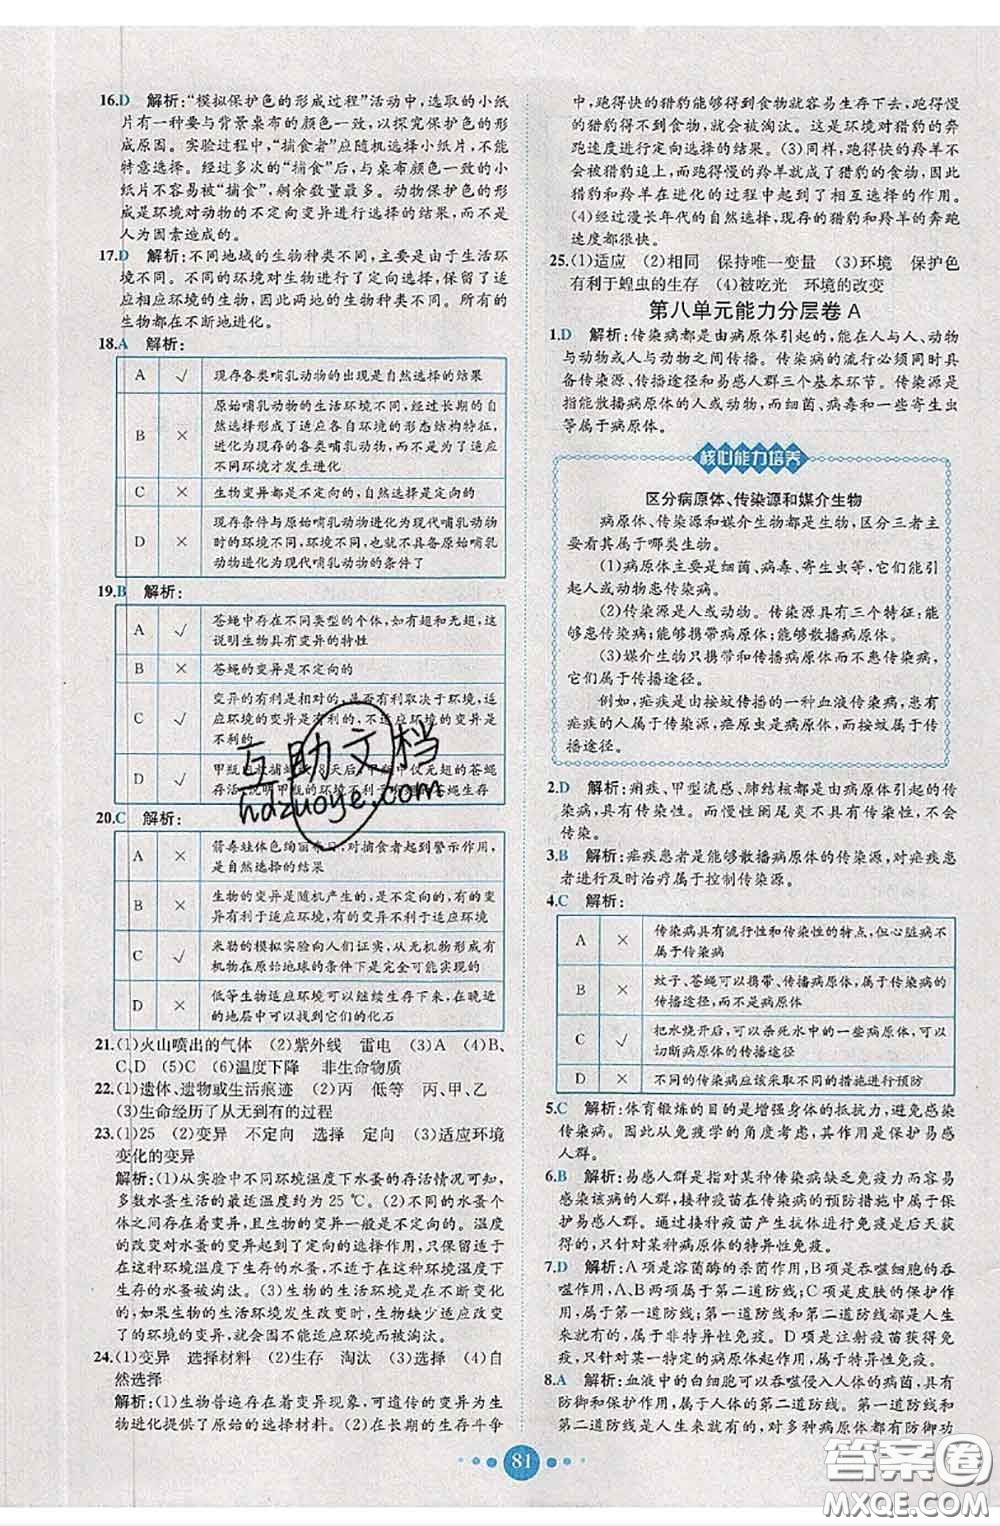 16.D　解析:“模拟保护色的形成过程”活动中,选取的小纸
片有一种要与背景桌布的颜色一致,以探究保护色的形
成原因。实验过程中,“捕食者”应随机选择小纸片,不能
特意选择。经过多次的“捕食”后,与桌布颜色一致的小
纸片不容易被“捕食”,剩余数量最多。动物保护色的形
成是环境对动物的不定向变异进行选择的结果,而不是
人为因素造成的。
17.D　解析:不同地域的生物种类不同,主要是由于生活环
境不同。不同的环境对生物进行了定向选择,保留了适
应相应环境的生物,因此两地的生物种类不同。所有的
生物都在不断地进化。
18.A　解析:
A √ 现存各类哺乳动物的出现是自然选择的结果
B × 原始哺乳动物的生活环境不同,经过长期的自然
选择,形成了适应各自环境的形态结构特征,
进化为现存的各类哺乳动物,而不是为了适应
不同环境才发生进化
C × 生物变异都是不定向的,选择是定向的
D × 现存条件与原始哺乳动物进化为现代哺乳动物
时的环境不同,因此,也就不具备原始哺乳动
物进化为现代哺乳动物的条件了
19.B　解析:
A √ 苍蝇中存在不同类型的个体,如有翅和无翅,这
说明生物具有变异的特性
B × 苍蝇的变异是不定向的
C √ 变异的有利是相对的,是否有利取决于环境,适
应环境的变异是有利的,不适应环境的变异是
不利的
D √ 甲瓶内放捕蝇纸8天后,甲瓶中仅无翅的苍蝇
存活,说明甲瓶的环境不利于有翅苍蝇的生存
20.C　解析:
A × 箭毒蛙体色绚丽夺目,对捕食者起到警示作用,
是自然选择的结果
B × 生物的变异是随机产生的,是不定向的,有的变
异有利于适应环境,有的变异不利于适应环境
C √ 米勒的模拟实验向人们证实,从无机物形成有
机物在原始地球的条件下是完全可能实现的
D × 低等生物适应环境可以继续生存下来,在晚近
的地层中可以找到它们的化石
21.(1)火山喷出的气体　(2)紫外线　雷电　(3)A　(4)B、
C、D　(5)C　(6)温度下降　非生命物质
22.(1)遗体、遗物或生活痕迹　(2)丙　低等　丙、甲、乙
(3)生命经历了从无到有的过程
23.(1)25　(2)变异　不定向　选择　定向　(3)适应环境
变化的变异
解析:(1)从实验中不同环境温度下水蚤的存活情况可知,
多数水蚤生活的最适温度约为25 ℃。(2)不同的水蚤个
体之间存在着变异,且生物的变异一般是不定向的。温度
的改变对水蚤的变异进行了定向的选择作用,保留了适于
在这种环境温度下生存的水蚤,不适于在这种环境温度下
生存的水蚤被淘汰。(3)生物的生活环境是在不断变化
的,如果生物的生活环境发生改变时,生物缺少适应改变
了的环境的变异,就会因不能适应环境而被淘汰。
24.(1)变异　选择材料　(2)生存　淘汰　(3)选择　(4)自
然选择
解析:(1)生物普遍存在着变异现象,可遗传的变异为生
物进化提供了原始的选择材料。(2)在长期的生存斗争
中,跑得快的猎豹能够得到食物就容易生存下去,跑得慢
的猎豹得不到食物,就会被淘汰。这是环境对猎豹的奔
跑速度进行定向选择的结果。(3)同样,跑得快的羚羊不会
被猎豹追上,而跑得慢的羚羊就会成为猎豹的食物,因此
猎豹和羚羊在进化的过程中起到了相互选择的作用。
(4)经过漫长年代的自然选择,现存的猎豹和羚羊的奔跑
速度都很快。
25.(1)适应　(2)相同　保持唯一变量　(3)环境　保护色
有利于蝗虫的生存　(4)被吃光　环境的改变
第八单元能力分层卷 A
1.D　解析:传染病都是由病原体引起的,能在人与人、动物
与动物或人与动物之间传播。传染病的流行必须同时具
备传染源、传播途径和易感人群三个基本环节。传染源是
指能散播病原体的人或动物,而细菌、病毒和一些寄生虫
等属于病原体。
核心能力培养
区分病原体、传染源和媒介生物
病原体、传染源和媒介生物都是生物,区分三者主
要看其属于哪类生物。
(1)病原体主要是细菌、病毒、寄生虫等,它们能引
起人或动物患传染病。
(2)传染源是人或动物。传染源具有三个特征:能
够患传染病;能够携带病原体;能够散播病原体。
(3)媒介生物只携带和传播病原体而不患传染病,
它们属于传播途径。
例如,疟疾是由按蚊传播的一种血液传染病,患有
疟疾的人属于传染源,疟原虫是病原体,而按蚊属于传
播途径。
2.D　解析:痢疾、甲型流感、肺结核都是由病原体引起的传
染病,具有传染性。而慢性阑尾炎不具有传染性,不会
传染。
3.B　解析:疟疾患者是能够散播病原体的传染源,对疟疾患
者进行及时治疗属于控制传染源。
4.C　解析:
A × 传染病具有流行性和传染性的特点,但心脏病不
属于传染病
B × 蚊子、苍蝇可以携带、传播病原体,属于传染病的
传播途径,而不是病原体
C √ 把水烧开后,可以杀死水中的一些病原体,可以
切断传染病的传播途径
D × 不同的传染病应该采取不同的措施进行预防
5.C　解析:体育锻炼的目的是增强身体的抵抗力,避免感染
传染病。因此从免疫学的角度考虑,属于保护易感
人群。
6.B　解析:易感人群是指对某种传染病缺乏免疫力而容易
感染该病的人群,接种疫苗在传染病的预防措施中属于保
护易感人群。通过接种疫苗产生抗体进行免疫是后天获
得的,只针对某种病原体的特异性免疫。
7.D　解析:A项是溶菌酶的杀菌作用,B项是吞噬细胞的吞噬
作用,A、B两项属于第二道防线;C项是皮肤的保护作
用,属于第一道防线;第一道防线和第二道防线都是人生
来就有的,属于非特异性免疫。D项是注射疫苗获得免
疫,只针对某一特定的病原体起作用,属于特异性免疫。
8.A　解析:血液中的白细胞可以吞噬侵入人体的病菌,具有
防御和保护作用,属于人体的第二道防线。第一道防线和
第二道防线是人生来就有的,对多种病原体都有防御功
81
互助文档
hdzuoye.com
答案圈
MXQE.COM